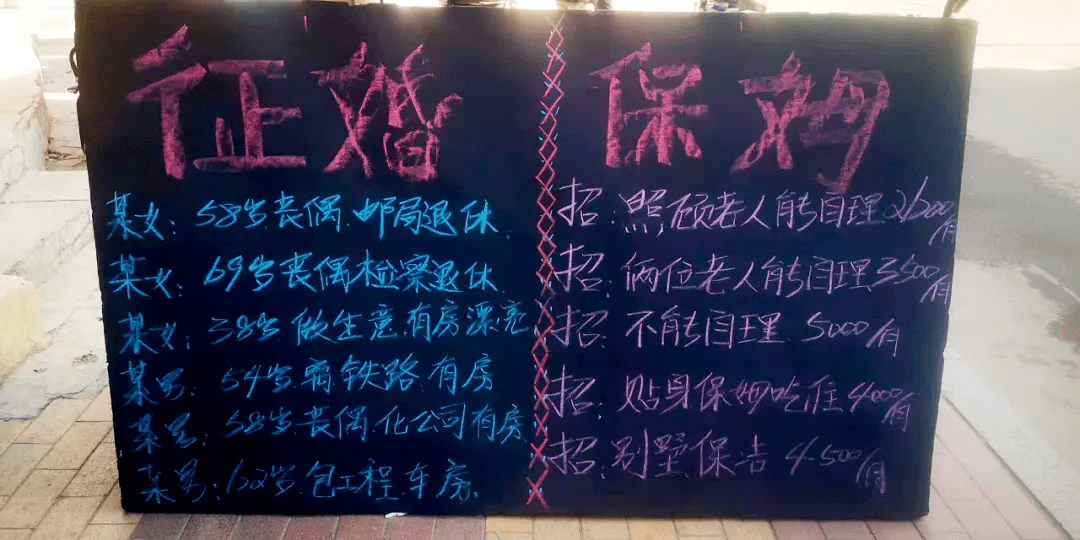 证婚
某女:58岁丧偶.邮局退休.
某女:69岁丧偶检察退休
某女:38岁做生意.有房漂亮
某男:54岁.离铁路.有房
某男:58岁.丧偶.化公司有房
某男:62岁.包工程.车房.
保姆
招:照顾老人能自理2600/有
招:俩位老人能自理3500/有
招:不能自理.5000/有
招:贴身保姆吃住4000/有
招:别墅保洁4500/有